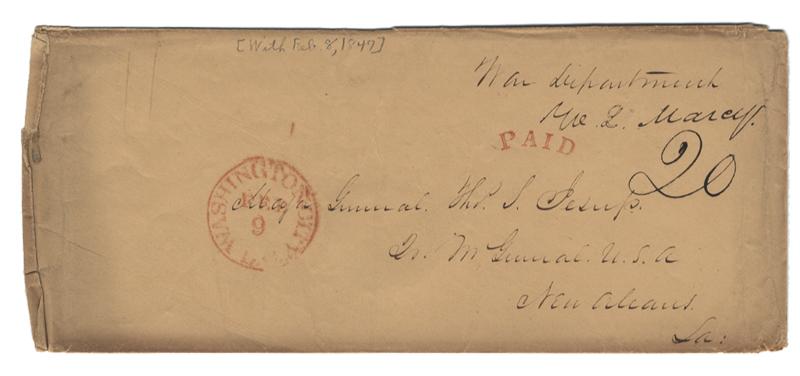 [With Feb. 8, 1847]
War Department
Wm L. Marcy.
PAID
20
WASHINGTON CITY
FEB
9
Maj. General. Th. S. Jesup.
Qr. M General. U.S.A
New Orleans.
La: